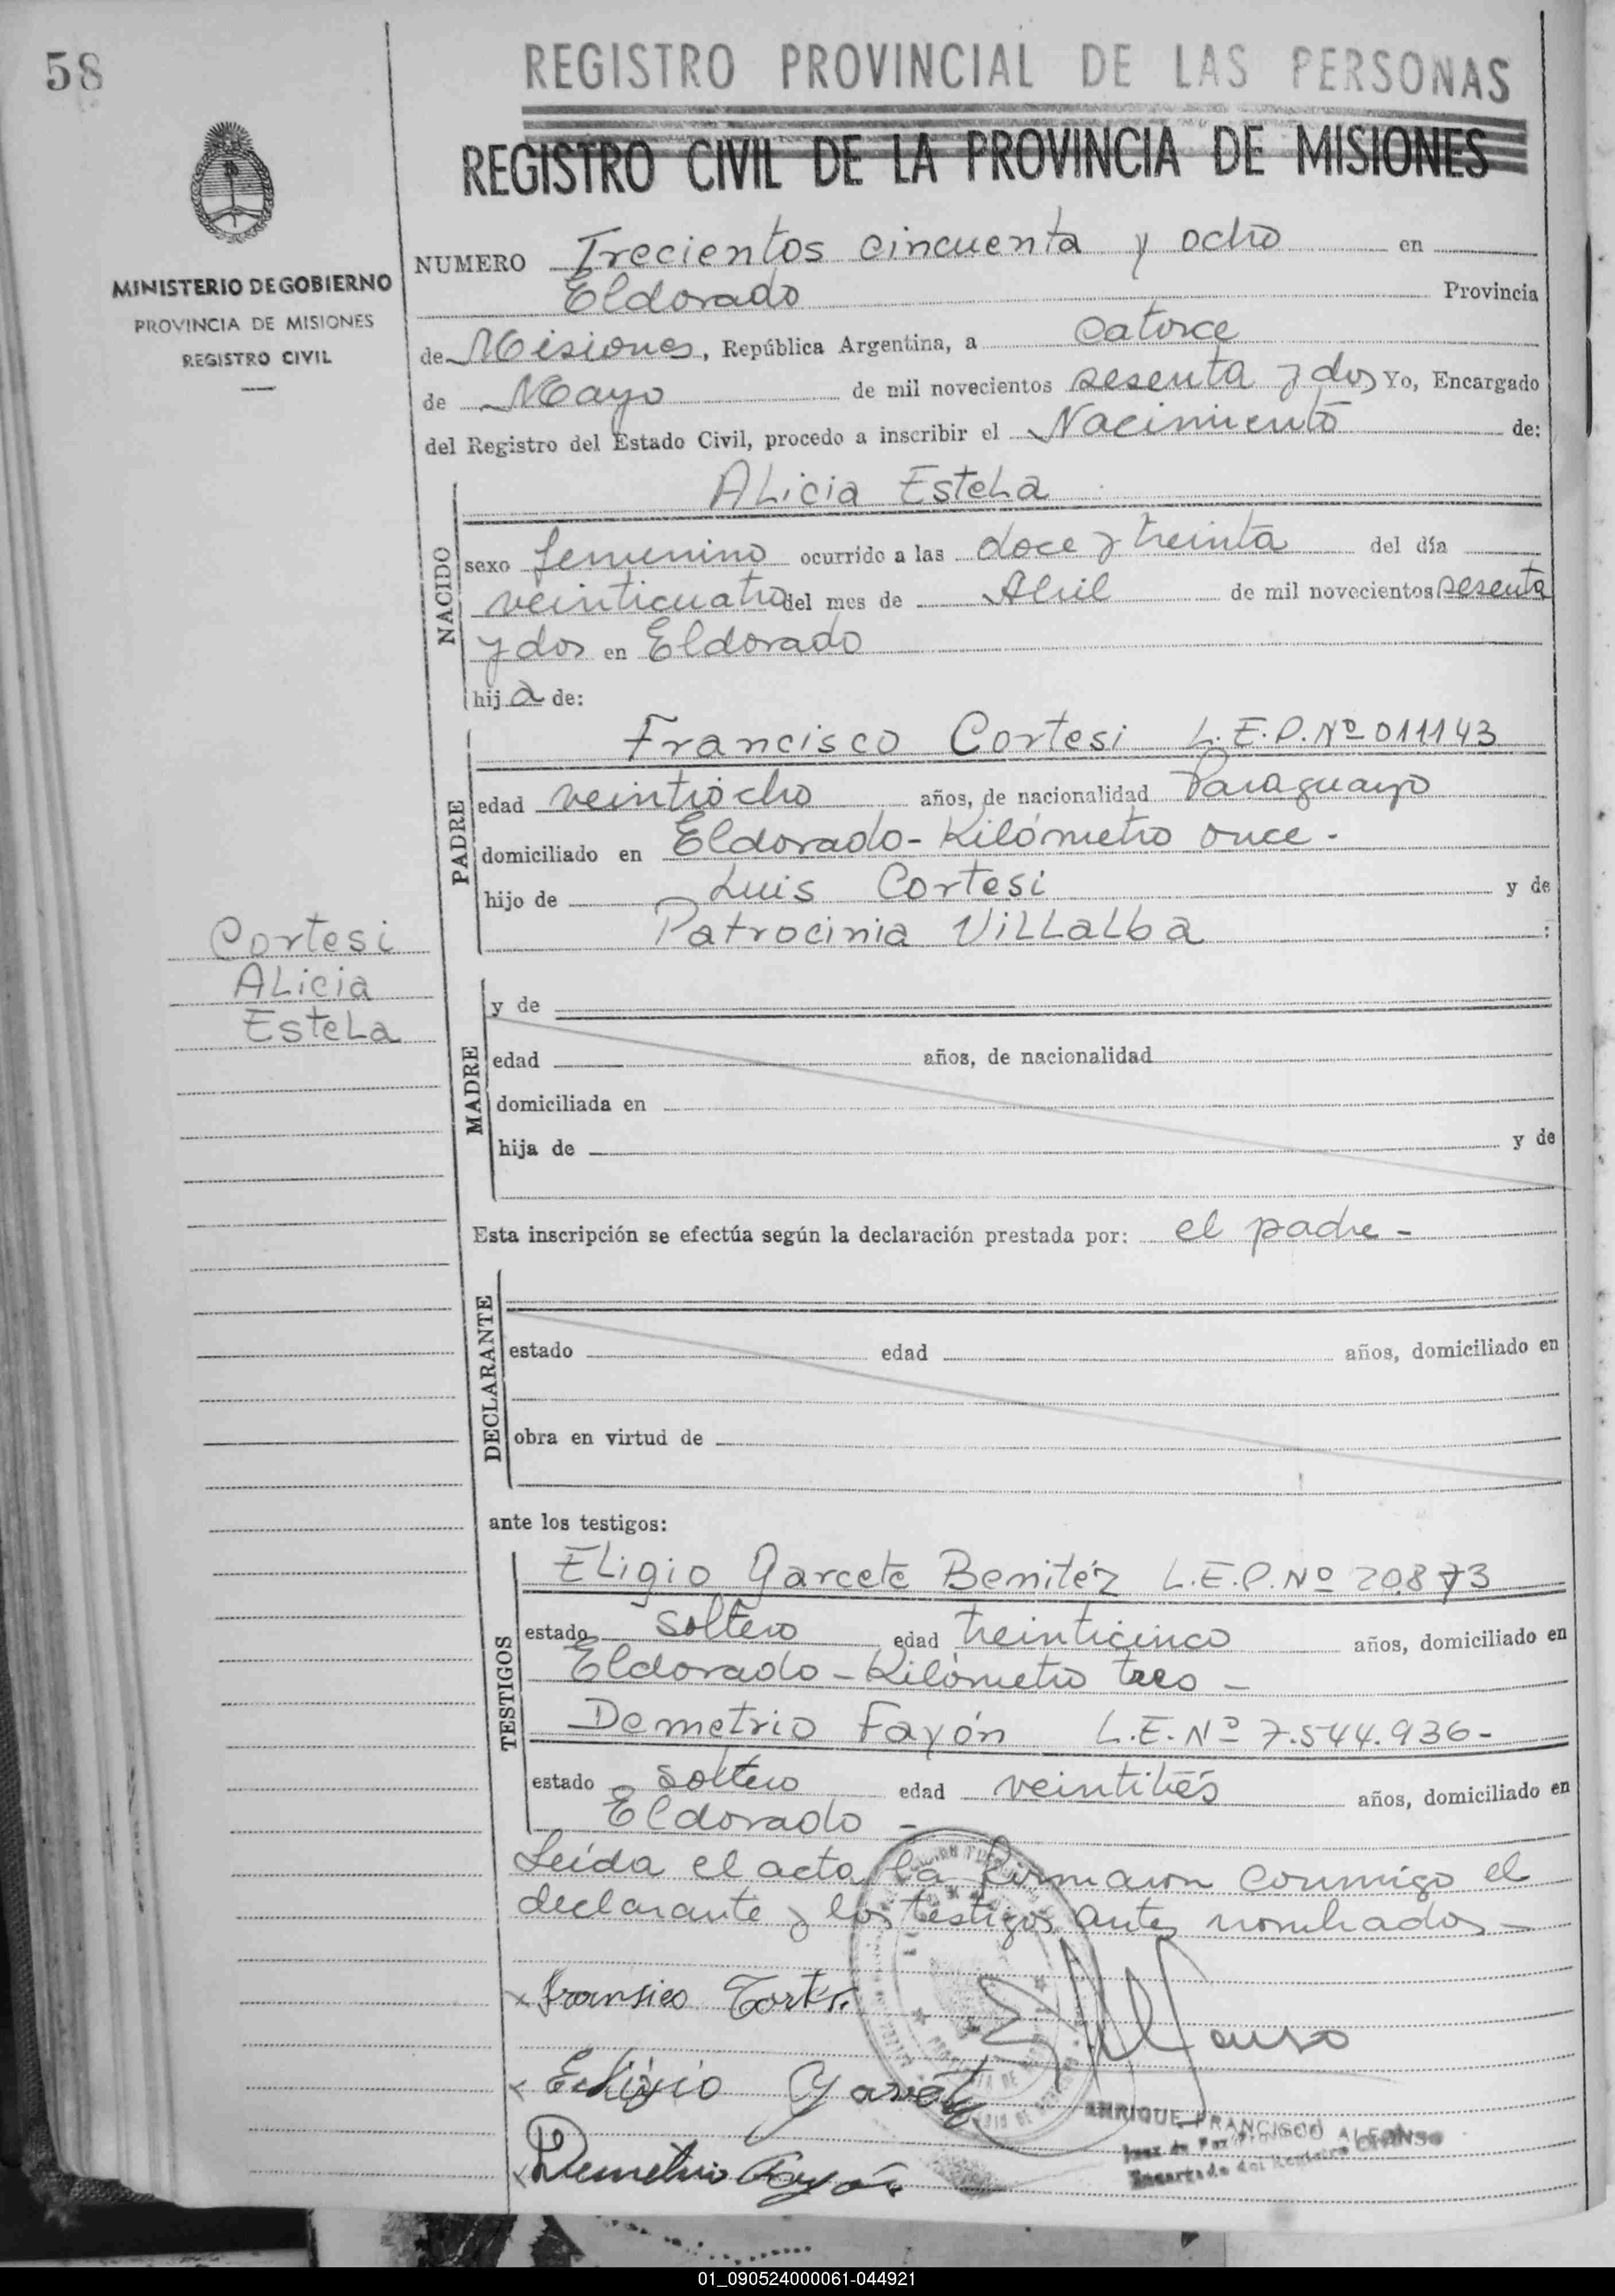 58
REGISTRO PROVINCIAL DE LAS PERSONAS
REGISTRO CIVIL DE LA PROVINCIA DE MISIONES
MINISTERIO DE GOBIERNO
PROVINCIA DE MISIONES
REGISTRO CIVIL
NUMERO Trecientos cincuenta y ocho en
Eldorado Provincia
de Misiones, República Argentina, a catorce
de Mayo de mil novecientos sesenta y dos Yo, Encargado
del Registro del Estado Civil, procedo a inscribir el Nacimiento de:
NACIDO
Alicia Estela
sexo femenino ocurrido a las doce y treinta del día
veinticuatro del mes de Abril de mil novecientos sesenta
y dos en Eldorado
hija de:
PADRE
Francisco Cortesi L.E.P. Nº 011143
edad veintiocho años, de nacionalidad Paraguayo
domiciliado en Eldorado - Kilómetro once -
hijo de Luis Cortesi y de
Patrocinia Villalba :
Cortesi
Alicia
Estela
MADRE
y de
edad años, de nacionalidad
domiciliada en
hija de y de
Esta inscripción se efectúa según la declaración prestada por: el padre -
DECLARANTE
estado edad años, domiciliado en
obra en virtud de
ante los testigos:
TESTIGOS
Eligio Garcete Benitéz L.E.P. Nº 20.873
estado soltero edad treinticinco años, domiciliado en
Eldorado - Kilómetro tres -
Demetrio Fayón L.E. Nº 7.544.936 -
estado soltero edad veintitrés años, domiciliado en
Eldorado -
Leída el acta la firmaron conmigo el
declarante y los testigos antes nombrados -
x Fransico
x Eligio
x Demetrio Fayón
ENRIQUE FRANCISCO ALFONSO
Juez de Paz
Encargado del Registro
01_090524000061-044921